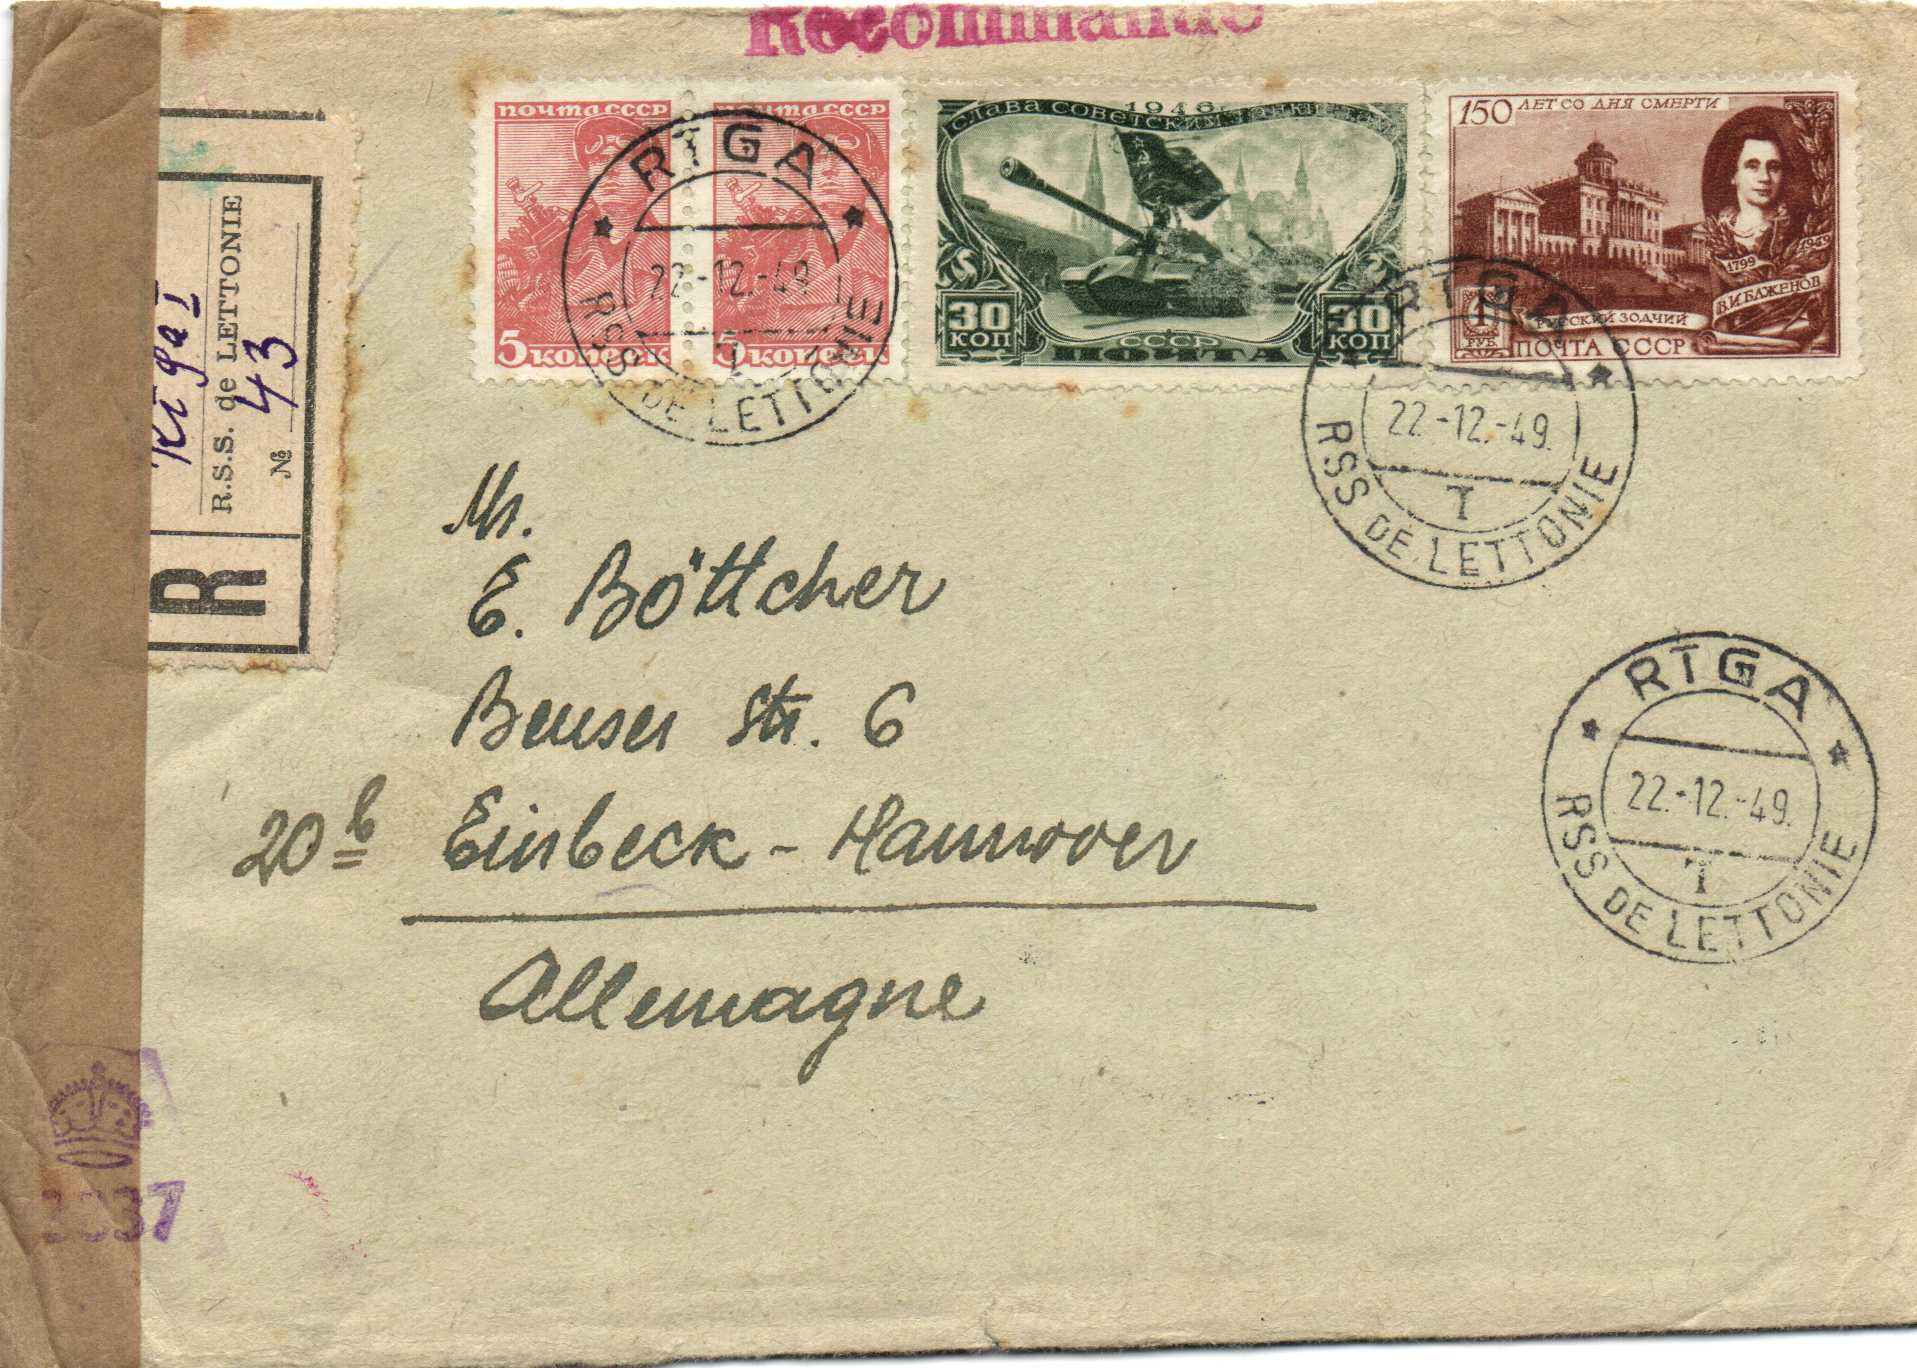 Recommandé
ПОЧТА СССР
5 КОПЕЕК
ПОЧТА СССР
5 КОПЕЕК
1946
СЛАВА СОВЕТСКИМ ТАНКИСТАМ
30 КОП
30 КОП
СССР
ПОЧТА
150 ЛЕТ СО ДНЯ СМЕРТИ
1799
1949
В.И. БАЖЕНОВ
1 РУБ
РУССКИЙ ЗОДЧИЙ
ПОЧТА СССР
RIGA
22.-12.-49
1
RSS DE LETTONIE
RIGA
22.-12.-49.
1
RSS DE LETTONIE
RIGA
22.-12.-49.
1
RSS DE LETTONIE
R
Riga I
R.S.S. de LETTONIE
№ 43
Mr.
E. Böttcher
Beuser Str. 6
20b Einbeck - Hannover
Allemagne